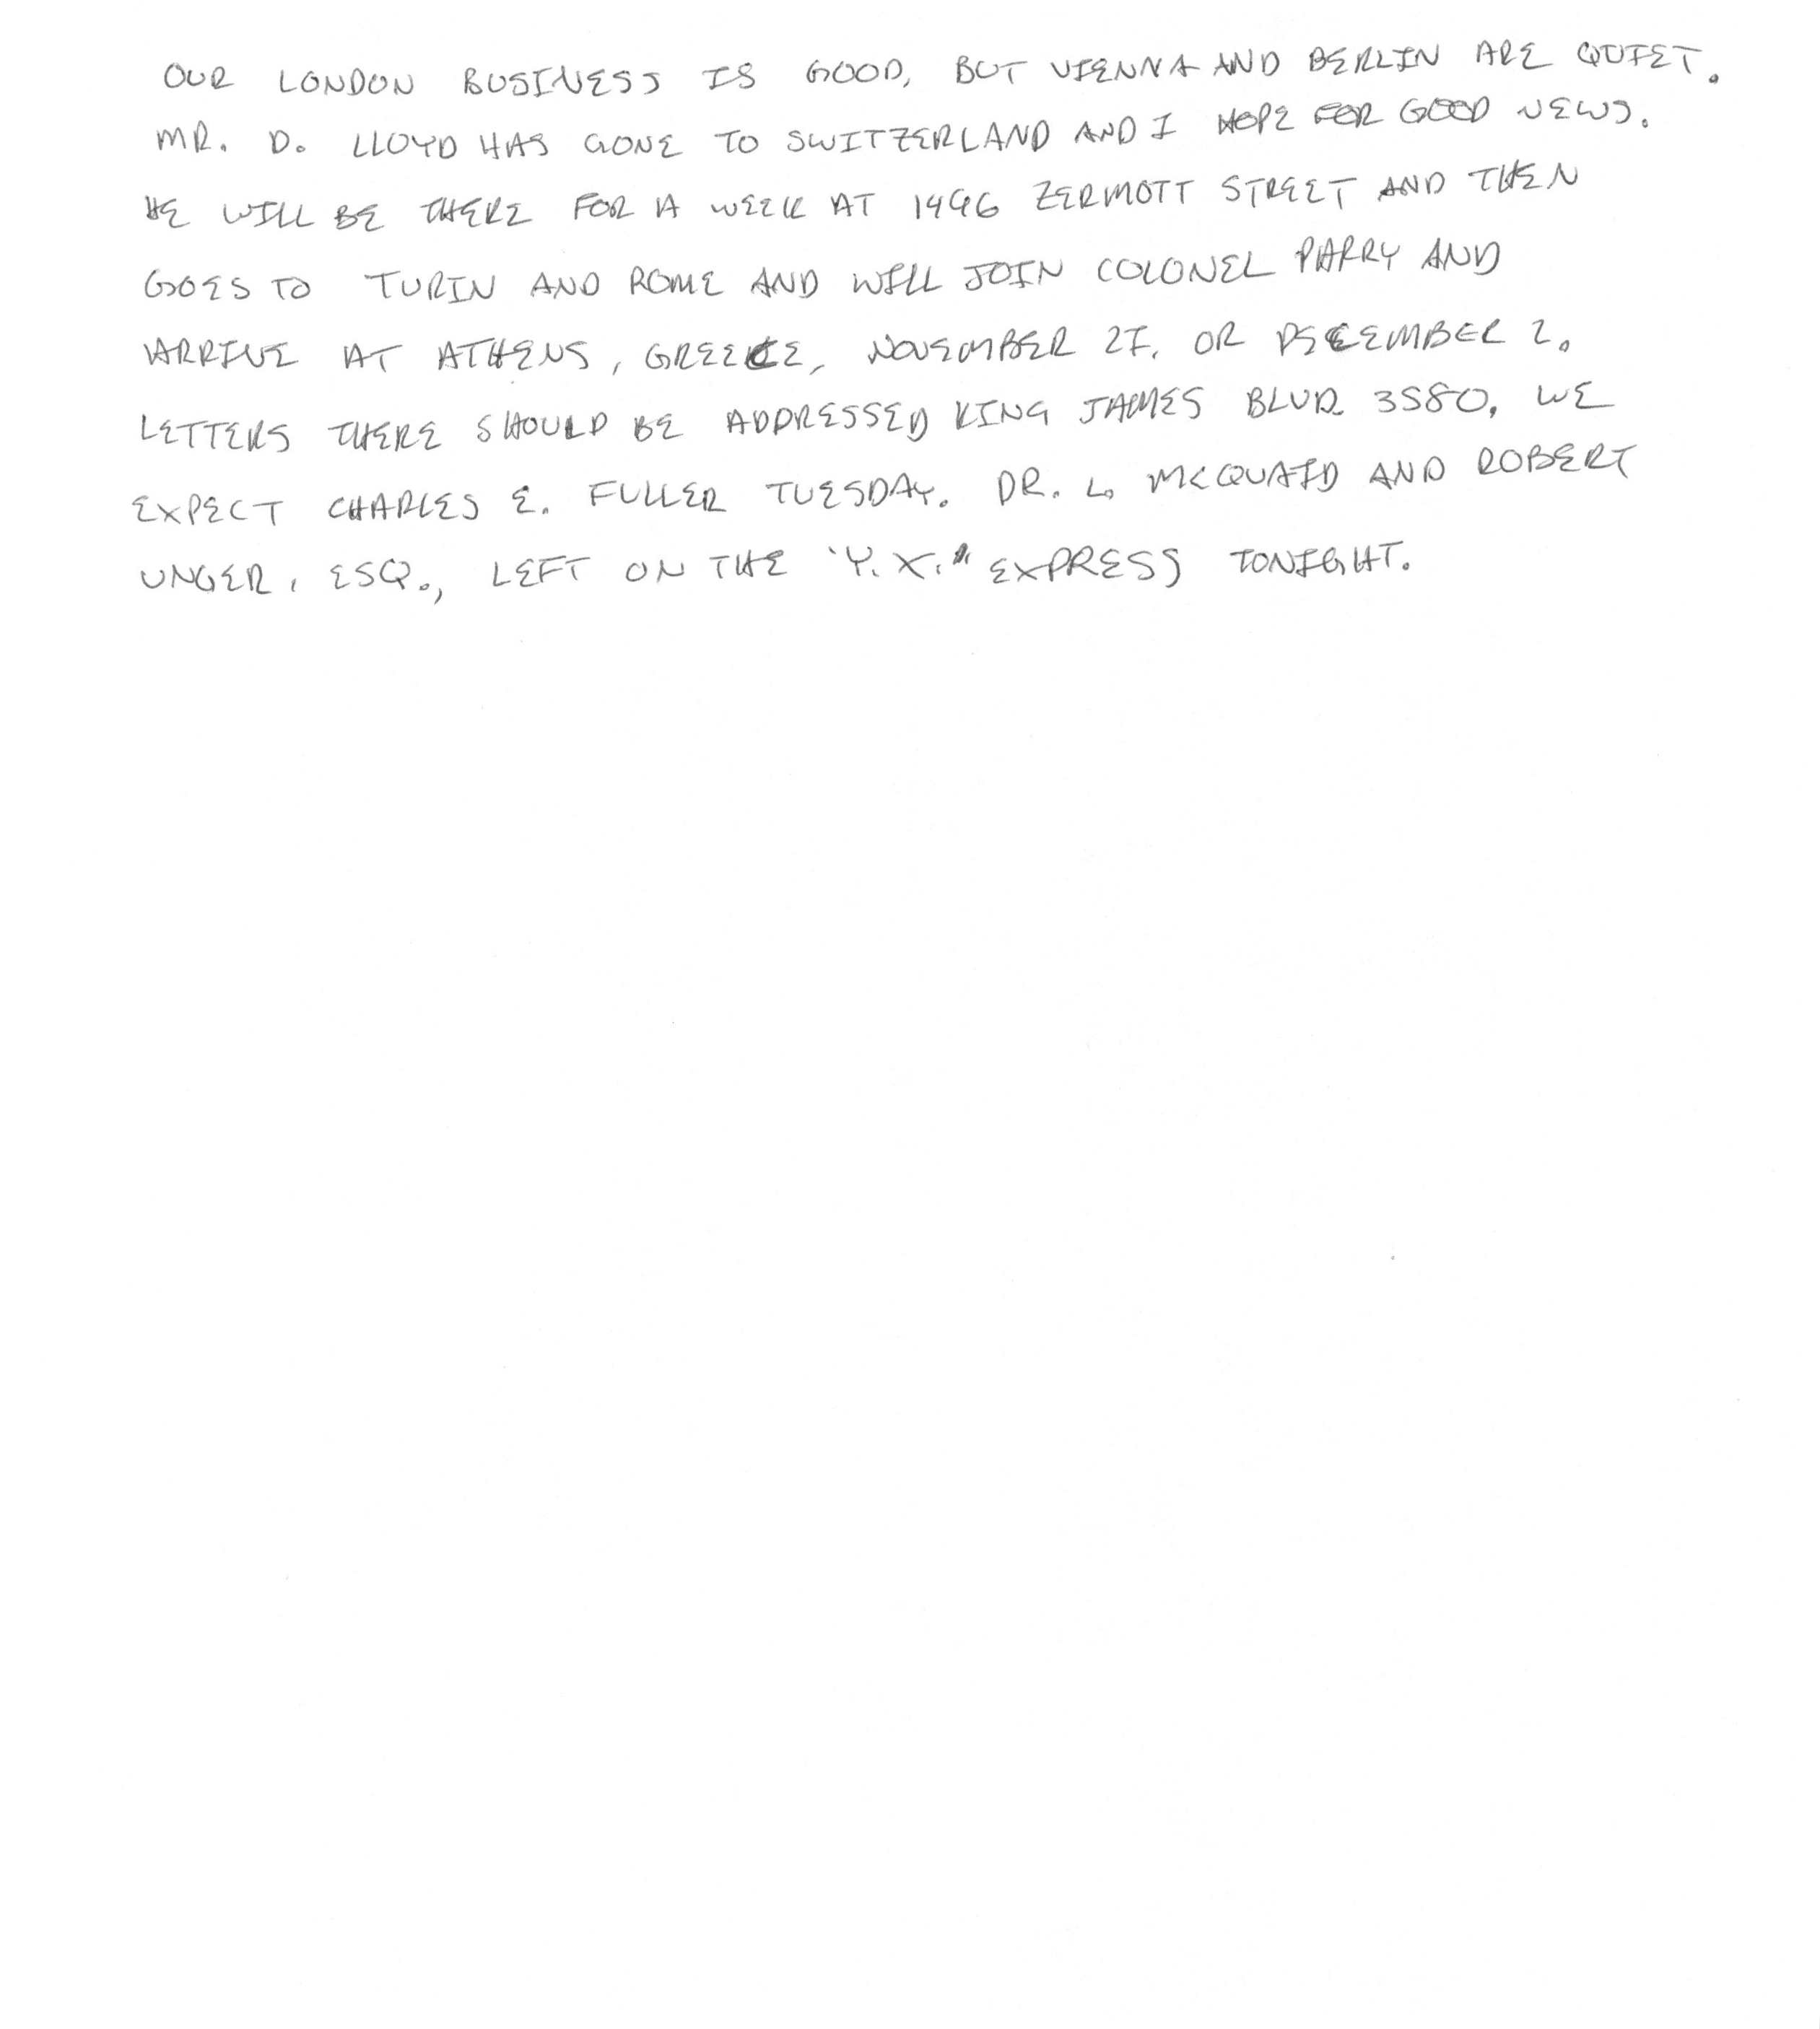 OUR LONDON BUSINESS IS GOOD, BUT VIENNA AND BERLIN ARE QUIET.
MR. D. LLOYD HAS GONE TO SWITZERLAND AND I HOPE FOR GOOD NEWS.
HE WILL BE THERE FOR A WEEK AT 1496 ZERMOTT STREET AND THEN
GOES TO TURIN AND ROME AND WILL JOIN COLONEL PARRY AND
ARRIVE AT ATHENS, GREECE, NOVEMBER 27. OR DECEMBER 2.
LETTERS THERE SHOULD BE ADDRESSED KING JAMES BLVD. 3580. WE
EXPECT CHARLES E. FULLER TUESDAY. DR. L. MCQUAID AND ROBERT
UNGER, ESQ., LEFT ON THE "Y.X." EXPRESS TONIGHT.